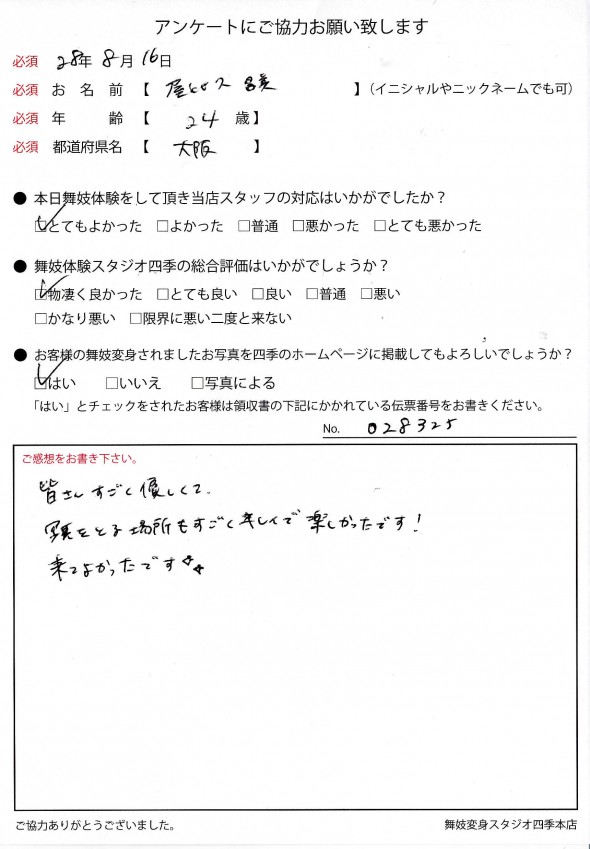 アンケートにご協力お願い致します
必須 28年8月16日
必須 お名前【 】(イニシャルやニックネームでも可)
必須 年齢【 24 歳】
必須 都道府県名【 大阪 】
● 本日舞妓体験をして頂き当店スタッフの対応はいかがでしたか？
☑とてもよかった □よかった □普通 □悪かった □とても悪かった
● 舞妓体験スタジオ四季の総合評価はいかがでしょうか？
☑物凄く良かった □とても良い □良い □普通 □悪い
□かなり悪い □限界に悪い二度と来ない
● お客様の舞妓変身されましたお写真を四季のホームページに掲載してもよろしいでしょうか？
☑はい □いいえ □写真による
「はい」とチェックをされたお客様は領収書の下記にかかれている伝票番号をお書きください。
No. 028325
ご感想をお書き下さい。
皆さんすごく優しくて、
写真をとる場所もすごく 楽しかったです！
来てよかったです
ご協力ありがとうございました。
舞妓変身スタジオ四季本店